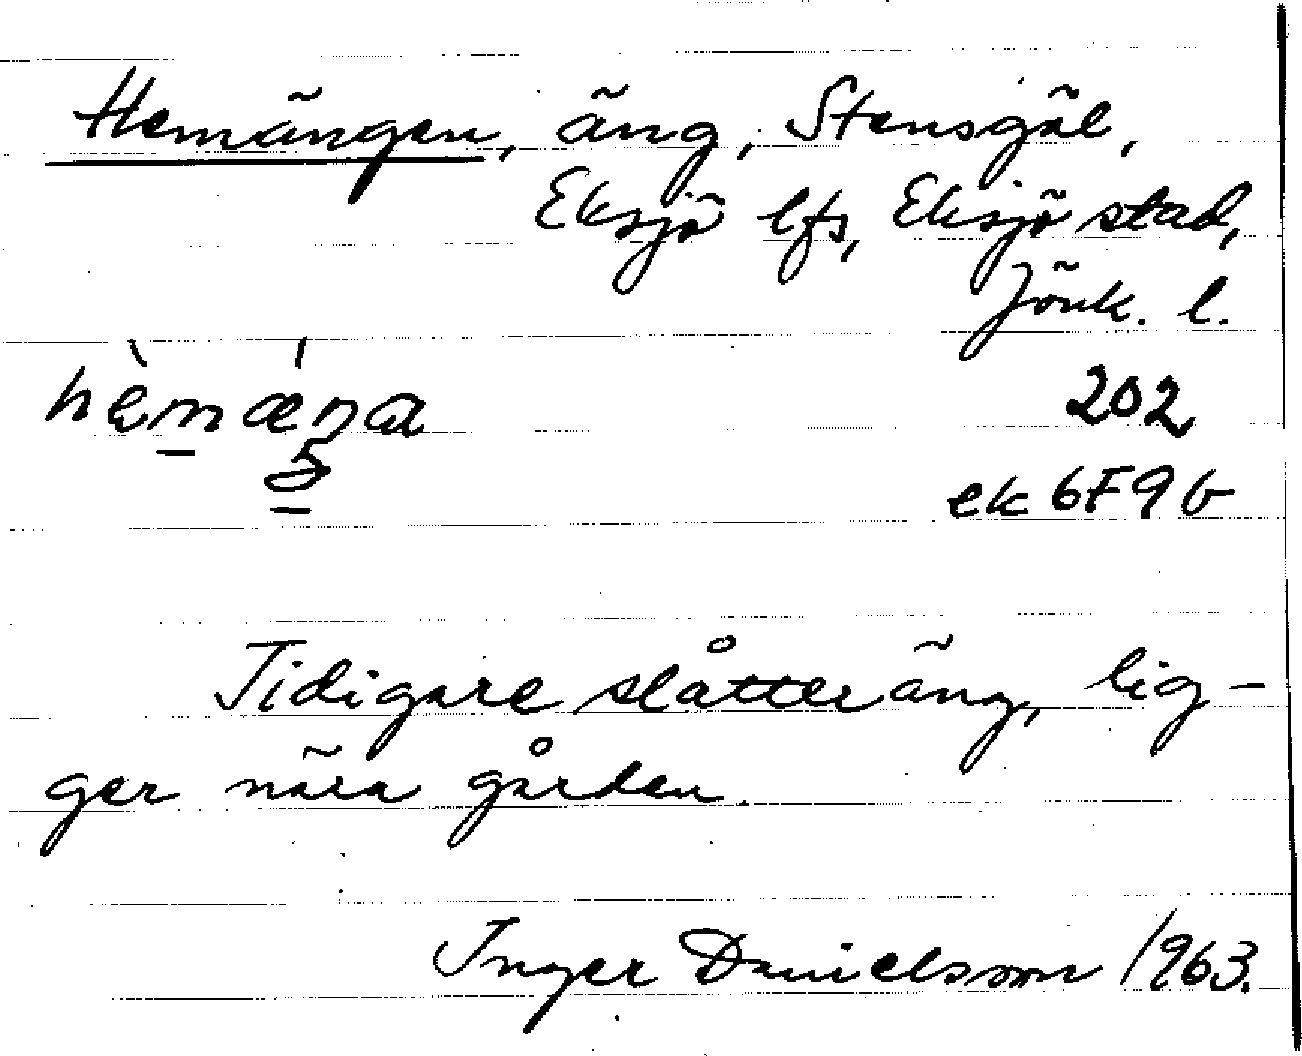 Hemängen, äng, Stensgöl,
Eksjö lfs, Eksjö stad,
Jönk. l.
202
ek 6F9b
Tidigare slåtteräng, lig-
ger nära gården.
Inger Danielsson 1963.